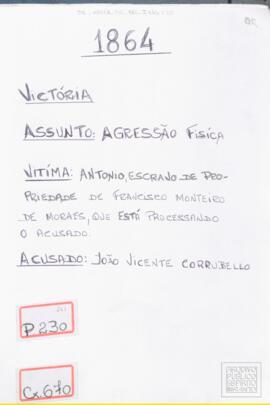 1864
VICTÓRIA
ASSUNTO: AGRESSÃO FISÍCA
VITÍMA: ANTONIO, ESCRAVO DE PRO-
PRIEDADE DE FRANCISCO MONTEIRO
DE MORAES, QUE ESTÁ PROCESSANDO
O ACUSADO.
ACUSADO: JOÃO VICENTE CORRUBELLO
P.230
Cx.670
ARQUIVO
PUBLICO
ESPIRITO
SANTO